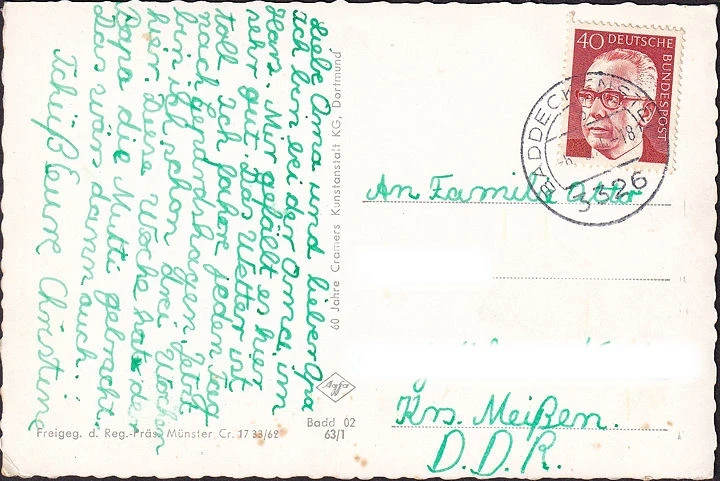 Liebe Oma und lieber Opa
Ich bin bei der Omci im
Harz. Mir gefällt es hier
sehr gut. Das Wetter ist
toll. Ich fahre jeden Tag
nach Gebhardshagen. Jetzt
bin ich schon drei Wochen
hier. Diese Woche hat der
Papa die Mutti gebracht.
Das wär's dann auch.
Tschüß Eure Christine
60 Jahre Cramers Kunstanstalt KG, Dortmund
Agfa
Badd 02
63/1
Freigeg. d. Reg.-Präs. Münster Cr. 1733/62
40 DEUTSCHE
BUNDESPOST
BADDECKENSTEDT
3326
An Familie Otto
Krs. Meißen.
D.D.R.